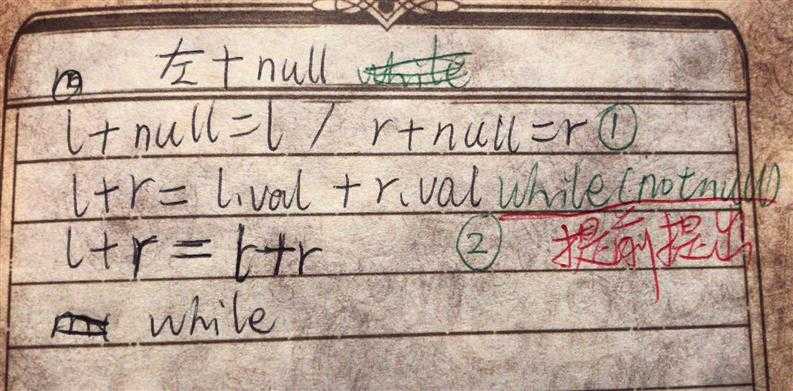 左+null while
l+null=l / r+null=r ①
l+r= l.val +r.val while(notnull)
l+r=l+r ② 提前提出
while